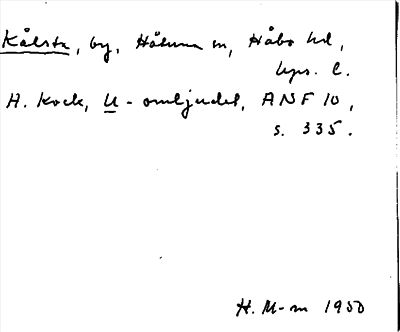 Kålsta, by, Håtuna sn, Håbo hd,
Upps. l.
A. Kock, U-omljudet, ANF 10,
s. 335.
H. M-m 1950